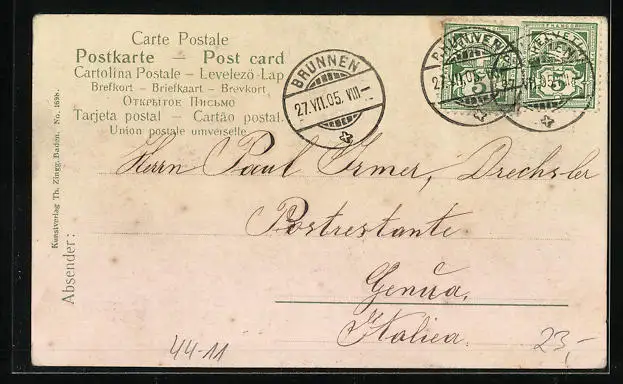 Carte Postale
Postkarte – Post card
Cartolina Postale – Levelező-Lap
Brefkort – Briefkaart – Brevkort
Открытое Письмо
Tarjeta postal – Cartão postal.
Union postale universelle
BRUNNEN
27.VII.05. VIII–
BRUNNEN
27.VII.05.
HELVETIA
FRANCO
5
5
Herrn Paul Irmer, Drechsler
Postrestante
Genua.
Italien.
Absender:
Kunstverlag Th. Zingg, Baden. No.
44-11
23,-